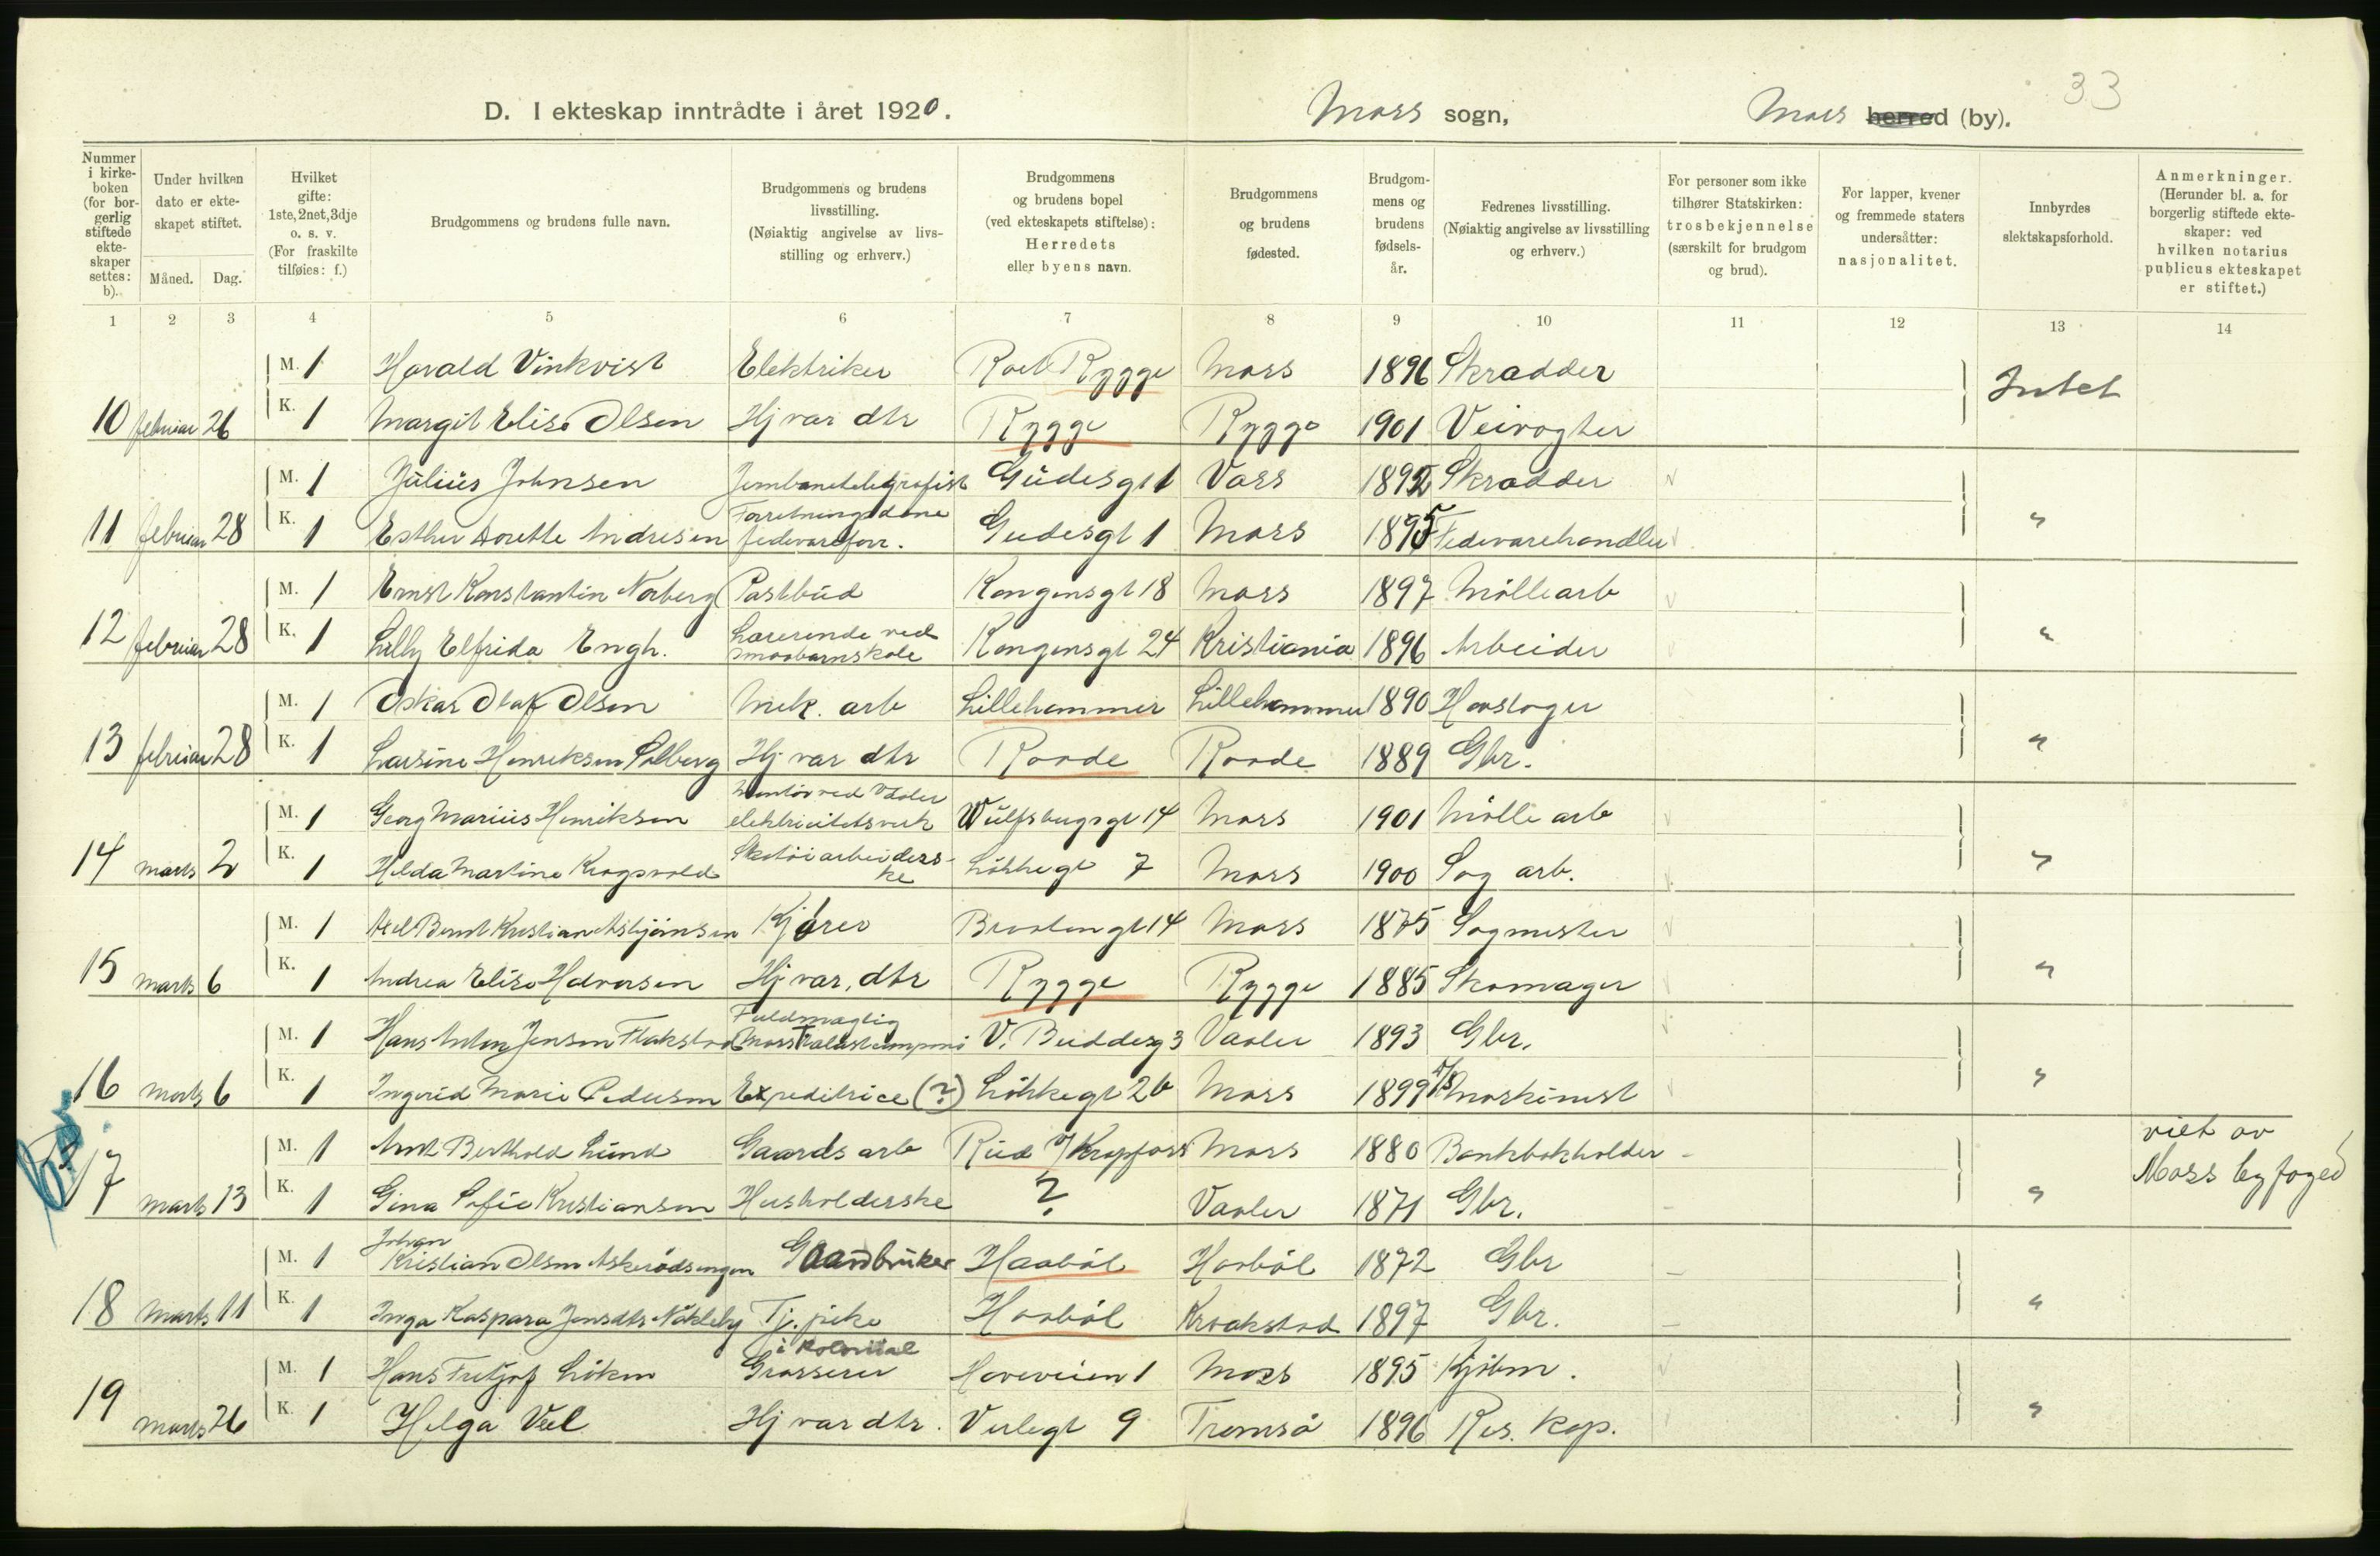 33
D. I ekteskap inntrådte i året 1920. Moss sogn, Moss herred (by).
Nummer i kirke-boken (for bor-gerlig stiftede ekte-skaper settes: b).
Under hvilken dato er ekte-skapet stiftet.
Måned. Dag.
Hvilket gifte: 1ste, 2net, 3dje o. s. v. (For fraskilte tilføies: f.)
Brudgommens og brudens fulle navn.
Brudgommens og brudens livsstilling. (Nøiaktig angivelse av livs-stilling og erhverv.)
Brudgommens og brudens bopel (ved ekteskapets stiftelse): Herredets eller byens navn.
Brudgommens og brudens fødested.
Brudgom-mens og brudens fødsels-år.
Fedrenes livsstilling. (Nøiaktig angivelse av livsstilling og erhverv.)
For personer som ikke tilhører Statskirken: trosbekjennelse (særskilt for brudgom og brud).
For lapper, kvener og fremmede staters undersåtter: nasjonalitet.
Innbyrdes slektskapsforhold.
Anmerkninger. (Herunder bl. a. for borgerlig stiftede ekte-skaper: ved hvilken notarius publicus ekteskapet er stiftet.)
1 2 3 4 5 6 7 8 9 10 11 12 13 14
M. 1 Harald Vinkvist Elektriker Roel Rygge Moss 1896 Skradder Intet
10 februar 26 K. 1 Margit Elise Olsen Hj var dtr Rygge Rygge 1901 Veivogter
M. 1 Julius Johnsen Jernbanetelegrafist Gudesgt 1 Vass 1892 Skradder
11 februar 28 K. 1 Esther Dorette Andresen Forretningsdame fedevareforr. Gudesgt 1 Moss 1895 Fedevarehandler "
M. 1 Ernst Konstantin Norberg Postbud Kongensgt 18 Moss 1897 Møllearb
12 februar 28 K. 1 Lilly Elfrida Engh. Lærerinde ved smaabarnskole Kongensgt 24 Kristiania 1896 Arbeider "
M. 1 Oskar Olaf Olsen Mek. arb Lillehammer Lillehammer 1890 Hovslager
13 februar 28 K. 1 Larsine Henriksen Solberg Hj var dtr Raade Raade 1889 Gbr. "
M. 1 Georg Marius Henriksen Montør ved Vaaler elektricitetsverk Wulfsbergsgt 14 Moss 1901 Mølle arb
14 marts 2 K. 1 Hilda Martine Krogsvold Skotøiarbeiders-ke Løkkegt 7 Moss 1900 Sag arb. "
M. 1 Axel Bernt Kristian Asbjørnsen Kjører Braatengt 14 Moss 1875 Sagmester
15 marts 6 K. 1 Andrea Elise Halvorsen Hj var. dtr Rygge Rygge 1885 Skomager "
M. 1 Hans Anton Jensen Flakstad Fuldmægtig Moss V. Buddesg 3 Vaaler 1893 Gbr.
16 marts 6 K. 1 Ingerid Marie Pedersen Expeditrice (?) Løkkegt 2b Moss 1899 Maskinist "
M. 1 Arnt Berthold Lund Gaards arb Rud i Krapfoss Moss 1880 Bankbokholder viet av
17 marts 13 K. 1 Gina Sofie Kristiansen Husholderske ? Vaaler 1871 Gbr. " Moss byfoged
M. 1 Johan Kristian Olsen Askerødsengen Gaardbruker Haabøl Haabøl 1872 Gbr
18 marts 11 K. 1 Inga Kaspara Jensdtr Nökleby Tj. pike Haabøl Kraakstad 1897 Gbr. "
M. 1 Hans Fritjof Løken Grosserer i kolonial Haveveien 1 Moss 1895 Kjøbm.
19 marts 26 K. 1 Helga Veel Hj var dtr. Verlegt 9 Tromsø 1896 Res. kap. "